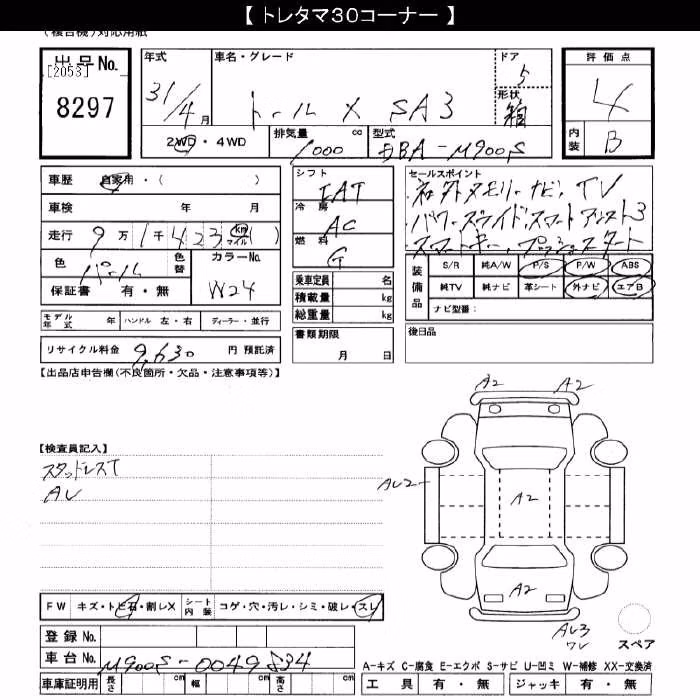 【 トレタマ３０コーナー 】
(複合機)対応用紙
出品No.
[2053]
8297
年式
31/4月
車名・グレード
トール X SA3
ドア
5
形状
箱
評価点
4
内装
B
2WD・4WD
排気量 cc
1000
型式
DBA-M900S
車歴 自家用・( )
車検 年 月
走行 9万1千423 km マイル ( )
色 パール 色替
カラーNo.
W24
保証書 有・無
シフト
IAT
冷房
AC
燃料
G
乗車定員 名
積載量 kg
総重量 kg
書類期限
月 日
セールスポイント
ナビ、TV
パワースライド、スマートアシスト3
スマートキー、プッシュスタート
装備品
S/R 純A/W P/S P/W ABS
純TV 純ナビ 革シート 外ナビ エアB
ナビ型番：
後日品
モデル年式 年 ハンドル 左・右 ディーラー・並行
リサイクル料金 9,630 円 預託済
【出品店申告欄(不良箇所・欠品・注意事項等)】
【検査員記入】
スタッドレスT
AU
A2 A2
AU2
A2
A2
AU3
スペア
FW キズ・トビ石・割レX シート内装 コゲ・穴・汚レ・シミ・破レ・スレ
登録No.
車台No. M900S-0049834
車庫証明用 長さ cm 幅 cm 高さ cm
A-キズ C-腐食 E-エクボ S-サビ U-凹ミ W-補修 XX-交換済
工具 有・無 ジャッキ 有・無